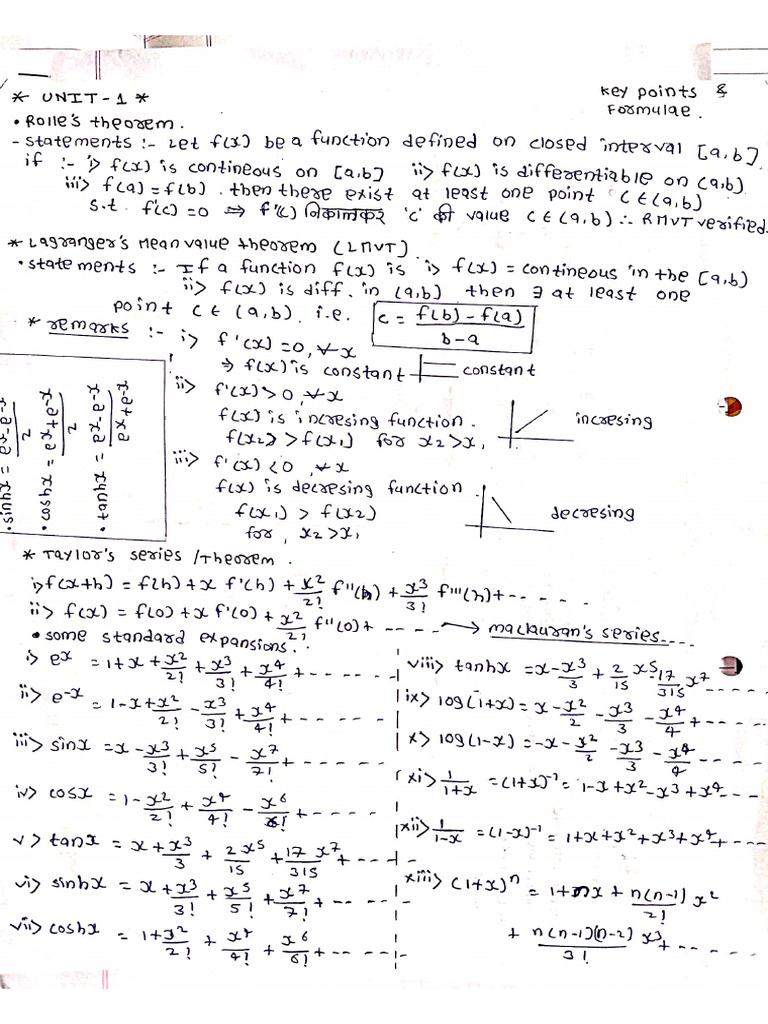 * UNIT-1 *
Key points &
Formulae.
• Rolle's theorem.
- statements :- Let f(x) be a function defined on closed interval [a,b].
if :- i> f(x) is contineous on [a,b] ii> f(x) is differentiable on (a,b)
iii> f(a) = f(b). then there exist at least one point C ∈ (a,b)
s.t. f'(c) = 0 ⇒ f'(c) निकालकर 'c' की value C ∈ (a,b) ∴ RMVT verified.
* Lagranger's Mean value theorem (LMVT).
• statements :- If a function f(x) is i> f(x) = contineous in the [a,b)
ii> f(x) is diff. in (a,b) then ∃ at least one
point C ∈ (a,b). i.e. c = f(b) - f(a) / b-a
* remarks :- i> f'(x) = 0, ∀ x
⇒ f(x) is constant constant
ii> f'(x) > 0, ∀ x
f(x) is incresing function. incresing
f(x2) > f(x1) for x2 > x1
iii> f'(x) < 0, ∀ x
f(x) is decresing function
f(x1) > f(x2) decresing
for, x2 > x1
• sinhx = e^x - e^-x / 2
• coshx = e^x + e^-x / 2
• tanhx = e^x - e^-x / e^x + e^-x
* Taylor's series /Theorem.
i> f(x+h) = f(h) + x f'(h) + x²/2! f''(h) + x³/3! f'''(h) + -- - - -
ii> f(x) = f(0) + x f'(0) + x²/2! f''(0) + - - - - → maclauran's series....
• some standard expansions.
i> e^x = 1 + x + x²/2! + x³/3! + x⁴/4! + - - - - -
ii> e^-x = 1 - x + x²/2! - x³/3! + x⁴/4! + - - - - -
iii> sinx = x - x³/3! + x⁵/5! - x⁷/7! + - - - - -
iv> cosx = 1 - x²/2! + x⁴/4! - x⁶/6! + - - - -
v> tanx = x + x³/3 + 2x⁵/15 + 17x⁷/315 + - - - -
vi> sinhx = x + x³/3! + x⁵/5! + x⁷/7! + - - - - -
vii> coshx = 1 + x²/2! + x⁴/4! + x⁶/6! + - - - -
viii> tanhx = x - x³/3 + 2/15 x⁵ - 17/315 x⁷ - - - - -
ix> log(1+x) = x - x²/2 - x³/3 - x⁴/4 + - - - -
x> log(1-x) = -x - x²/2 - x³/3 - x⁴/4 - - - -
xi> 1/1+x = (1+x)⁻¹ = 1 - x + x² - x³ + x⁴ - - - -
xii> 1/1-x = (1-x)⁻¹ = 1 + x + x² + x³ + x⁴ + - - - -
xiii> (1+x)ⁿ = 1 + nx + n(n-1)/2! x²
+ n(n-1)(n-2)/3! x³ + - - - - -